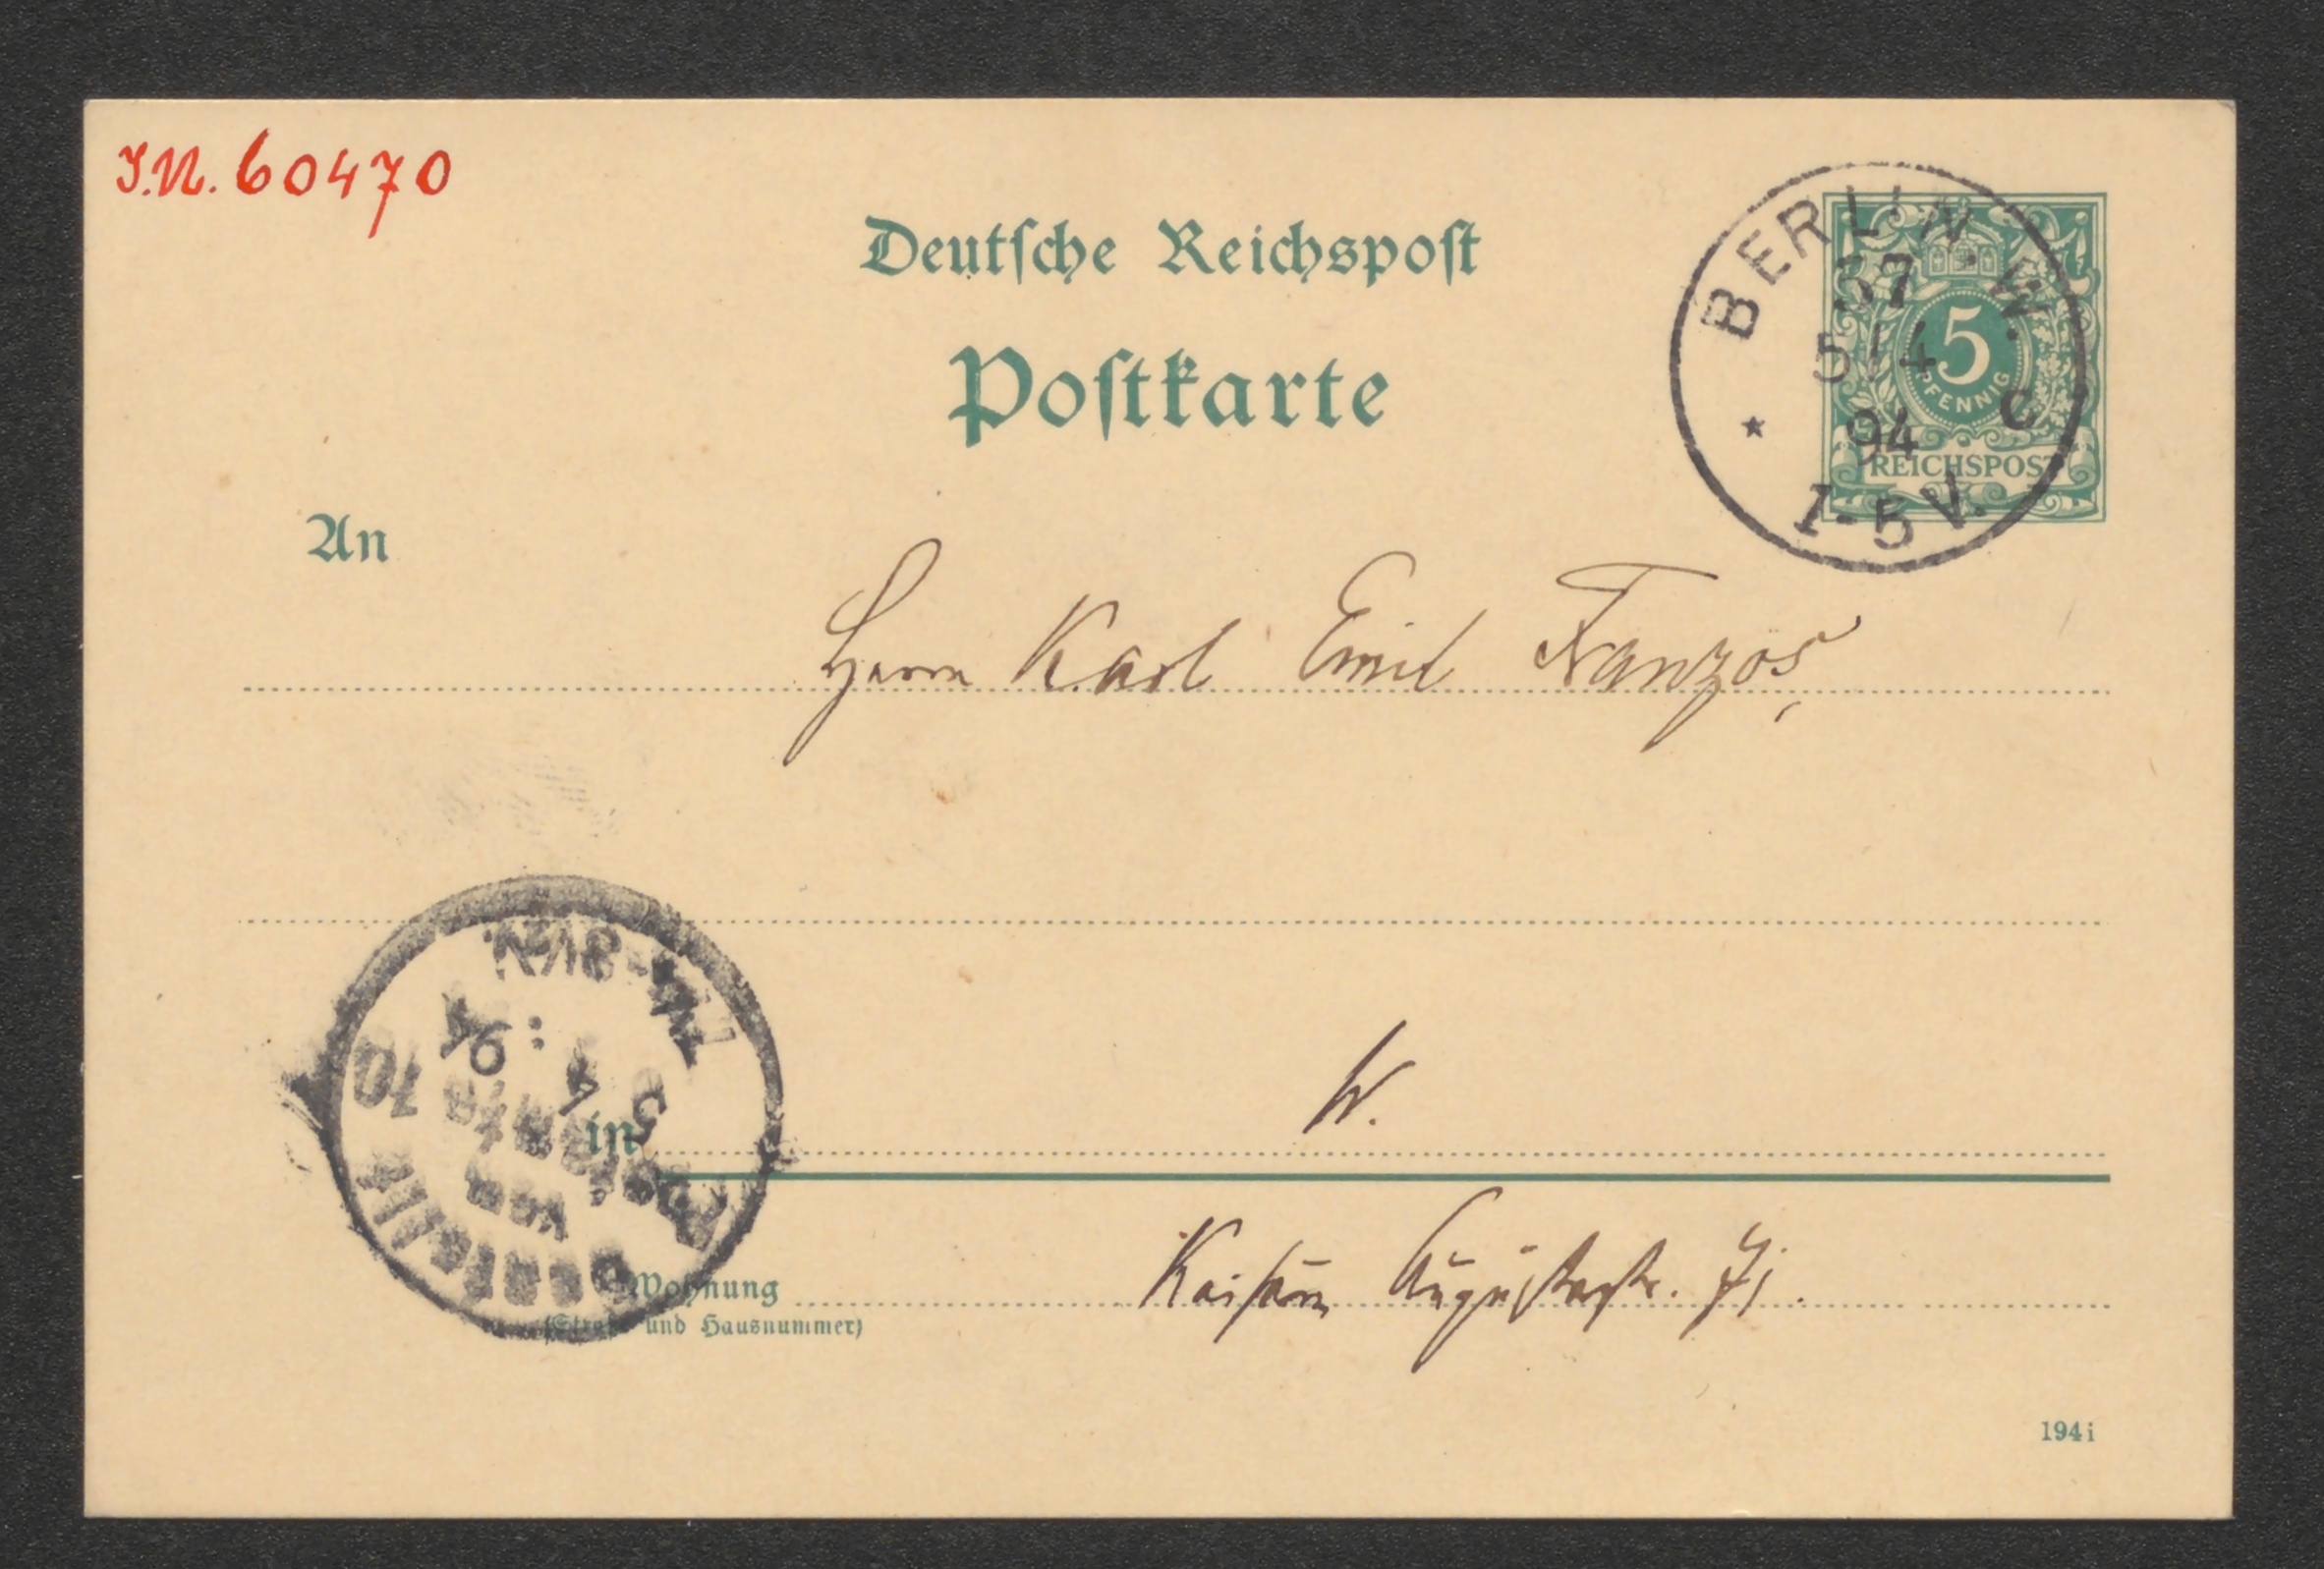 J.N. 60470
Deutsche Reichspost
Postkarte
BERLIN. W.
37
5/4
94
C
* 1-5 V.
5
PFENNIG
REICHSPOST
An
Herrn Karl Emil Franzos,
in W.
Wohnung Kaiserin Augustastr. 71.
(Straße und Hausnummer)
Bestellt
vom
Postamte 10
5
4
94
194i